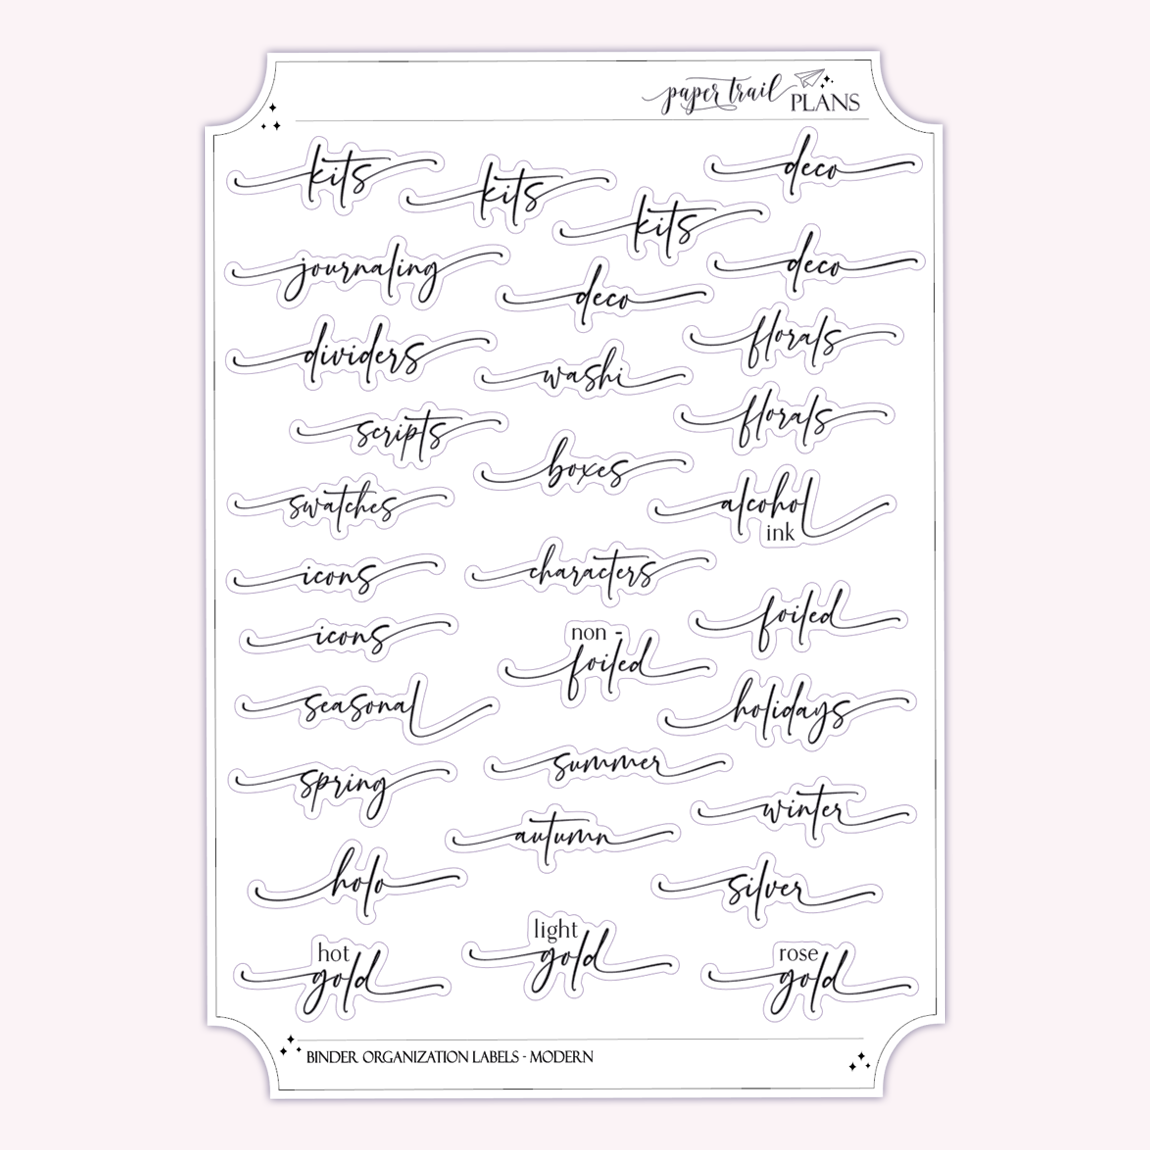 paper trail
PLANS
kits
kits
deco
kits
journaling
deco
deco
dividers
florals
washi
scripts
florals
boxes
swatches
alcohol
ink
icons
characters
foiled
icons
non -
foiled
seasonal
holidays
spring
summer
winter
autumn
holo
silver
hot
gold
light
gold
rose
gold
BINDER ORGANIZATION LABELS - MODERN